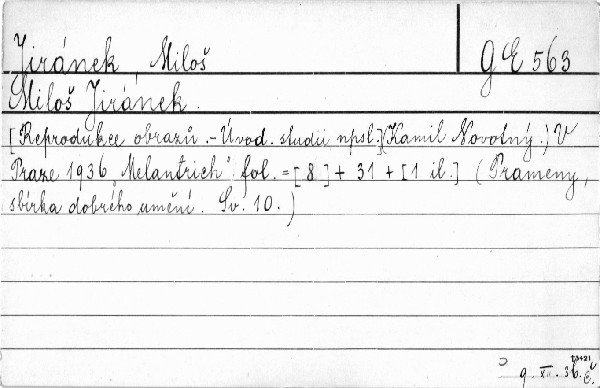 Jiránek Miloš gE 563
Miloš Jiránek.
[Reprodukce obrazů. - Úvod. studii npsl.] (Kamil Novotný.) V
Praze 1936 "Melantrich" fol. = [8] + 31 + [1 il.] (Prameny,
sbírka dobrého umění. Sv. 10.)
9. XI. 36.